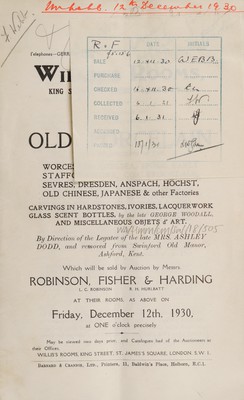 12th December 1930
R & F
DATE
INITIALS
SALE
PURCHASE
CHECKED
COLLECTED
RECEIVED
6.1.31
15/1/31
Telephones—GERR
WIL
KING S
OLD
WORCE
STAFFO
SEVRES, DRESDEN, ANSPACH, HÖCHST,
OLD CHINESE, JAPANESE & other Factories
CARVINGS IN HARDSTONES, IVORIES, LACQUERWORK
GLASS SCENT BOTTLES, by the late GEORGE WOODALL,
AND MISCELLANEOUS OBJETS d' ART.
By Direction of the Legatee of the late MRS. ASHLEY
DODD, and removed from Swinford Old Manor,
Ashford, Kent.
Which will be sold by Auction by Messrs
ROBINSON, FISHER & HARDING
L. G. ROBINSON
R. H. HURLBATT
AT THEIR ROOMS, AS ABOVE ON
Friday, December 12th, 1930,
at ONE o'clock precisely
May be viewed two days prior, and Catalogues had of the Auctioneers at
their Offices,
WILLIS'S ROOMS, KING STREET, ST. JAMES'S SQUARE, LONDON, S.W. 1.